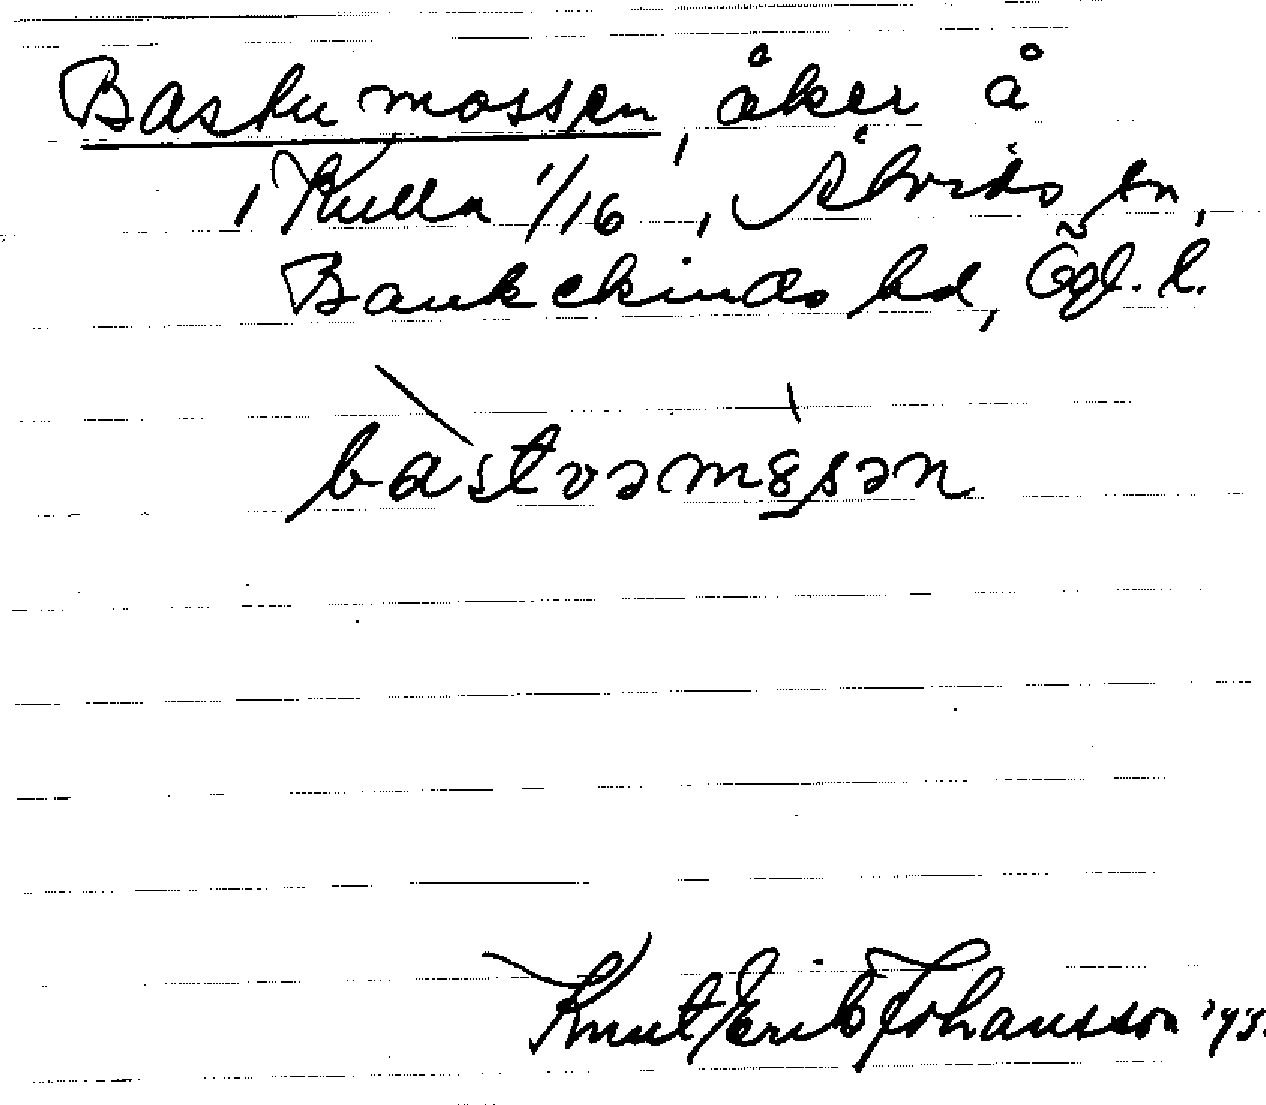 Bastumossen, åker å
Kulla 1/16, Åtvids sn,
Bankekinds hd, Ögl. l.
bastvəm8sən
Knut Erik Johansson